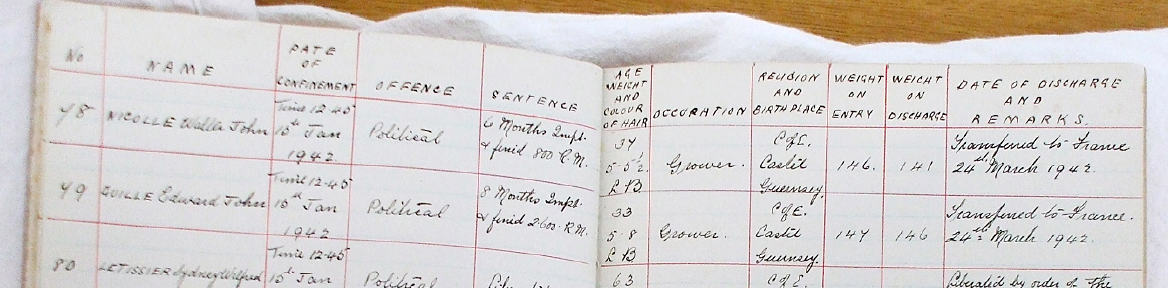 No NAME DATE OF CONFINEMENT OFFENCE SENTENCE AGE WEIGHT AND COLOUR OF HAIR OCCUPATION RELIGION AND BIRTHPLACE WEIGHT ON ENTRY WEIGHT ON DISCHARGE DATE OF DISCHARGE AND REMARKS.
78 NICOLLE Walter John Time 12-45 15th Jan 1942. Political 6 Months Impt. & fined 800 R.M. 34 5-5½. L B. Grower. C of E. Castel Guernsey 146. 141 Transferred to France 24th March 1942.
79 OUILLE Edward John Time 12-45 15th Jan 1942 Political 8 Months Impt. & fined 2600 R.M. 33 5-8 L B Grower. C of E. Castel Guernsey. 147 146 Transferred to France. 24th March 1942.
80 LETISSIER Sydney Wilfred Time 12-45 15th Jan Political 63 C of E. Liberated by order of the